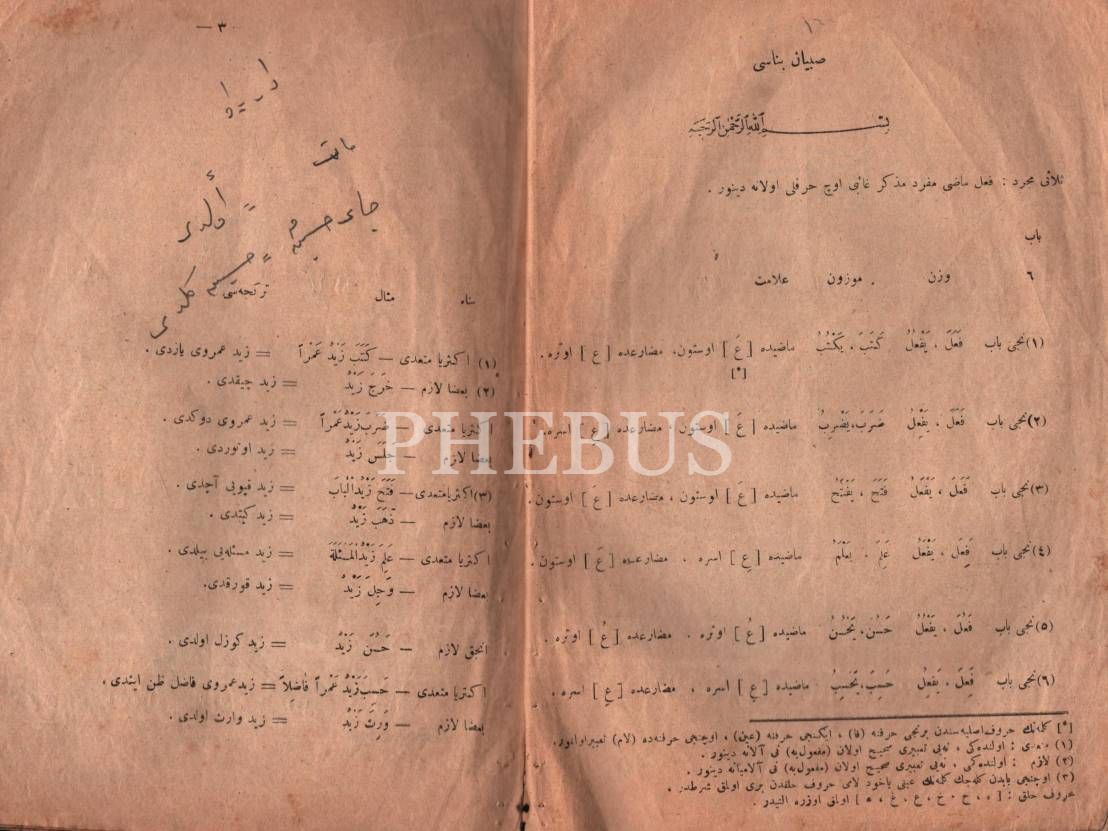 صبيان بناسى
بسم الله الرحمن الرحيم
ثلاثى مجرد : فعل ماضى مفرد مذكر غائبى اوچ حرفلى اولانه دينور .
باب
٦ وزن . موزون علامت
(١)نجى باب فَعَلَ ، يَفْعُلُ كَتَبَ ، يَكْتُبُ ماضيده [عَ] اوستون، مضارعده [ع] اوتره .
[*]
(٢)نجى باب فَعَلَ ، يَفْعِلُ ضَرَبَ،يَضْرِبُ ماضيده [عَ] اوستون ، مضارعده [ع] اسره.
(٣)نجى باب فَعَلَ ، يَفْعَلُ فَتَحَ ، يَفْتَحُ ماضيده [عَ] اوستون ، مضارعده [عَ] اوستون.
(٤)نجى باب فَعِلَ ، يَفْعَلُ عَلِمَ ، يَعْلَمُ ماضيده [عِ] اسره . مضارعده [عَ] اوستون .
(٥)نجى باب فَعُلَ ، يَفْعُلُ حَسُنَ ، يَحْسُنُ ماضيده [عُ] اوتره . مضارعده [عُ] اوتره .
(٦)نجى باب فَعِلَ ، يَفْعِلُ حَسِبَ ، يَحْسِبُ ماضيده [عِ] اسره . مضارعده [عِ] اسره .
[*] كلمه‌نك حروف اصليه‌سندن برنجى حرفنه (فا) ، ايكنجى حرفنه (عين) ، اوچنجى حرفنه‌ده (لام) تعبير اولنور.
(١) متعدى : اولنده‌كى ، نه‌يى تعبيرى صحيح اولان (مفعول‌به) فى آلانه دينور .
(٢) لازم : اولنده‌كى ، نه‌يى تعبيرى صحيح اولان (مفعول‌به) فى آلاميانه دينور .
(٣) اوچنجى بابدن كله‌جك كلمه‌نك عينى ياخود لامى حروف حلقدن برى اولمق شرطدر .
حروف حلق : [ء ، ح ، خ ، ع ، غ ، ه] اولمق اوزره التيدر .
— ٣
مات = أولدى
كلدى
بناء مثال ترجمه‌سى
(١) اكثريا متعدى — كَتَبَ زَيْدٌ عَمْراً = زيد عمروى يازدى .
(٢) بعضا لازم — خَرَجَ زَيْدٌ = زيد چيقدى .
اكثريا متعدى — ضَرَبَ زَيْدٌ عَمْراً = زيد عمروى دوكدى .
بعضا لازم — جَلَسَ زَيْدٌ = زيد اوتوردى .
(٣) اكثريا متعدى — فَتَحَ زَيْدٌ الْبَابَ = زيد قپويى آچدى .
بعضا لازم — ذَهَبَ زَيْدٌ = زيد كيتدى .
اكثريا متعدى — عَلِمَ زَيْدٌ الْمَسْئَلَةَ = زيد مسئله‌يى بيلدى .
بعضا لازم — وَجِلَ زَيْدٌ = زيد قورقدى.
انجق لازم — حَسُنَ زَيْدٌ = زيد كوزل اولدى .
اكثريا متعدى — حَسِبَ زَيْدٌ عَمْراً فَاضِلاً = زيد عمروى فاضل ظن ايتدى .
بعضا لازم — وَرِثَ زَيْدٌ = زيد وارث اولدى .
PHEBUS